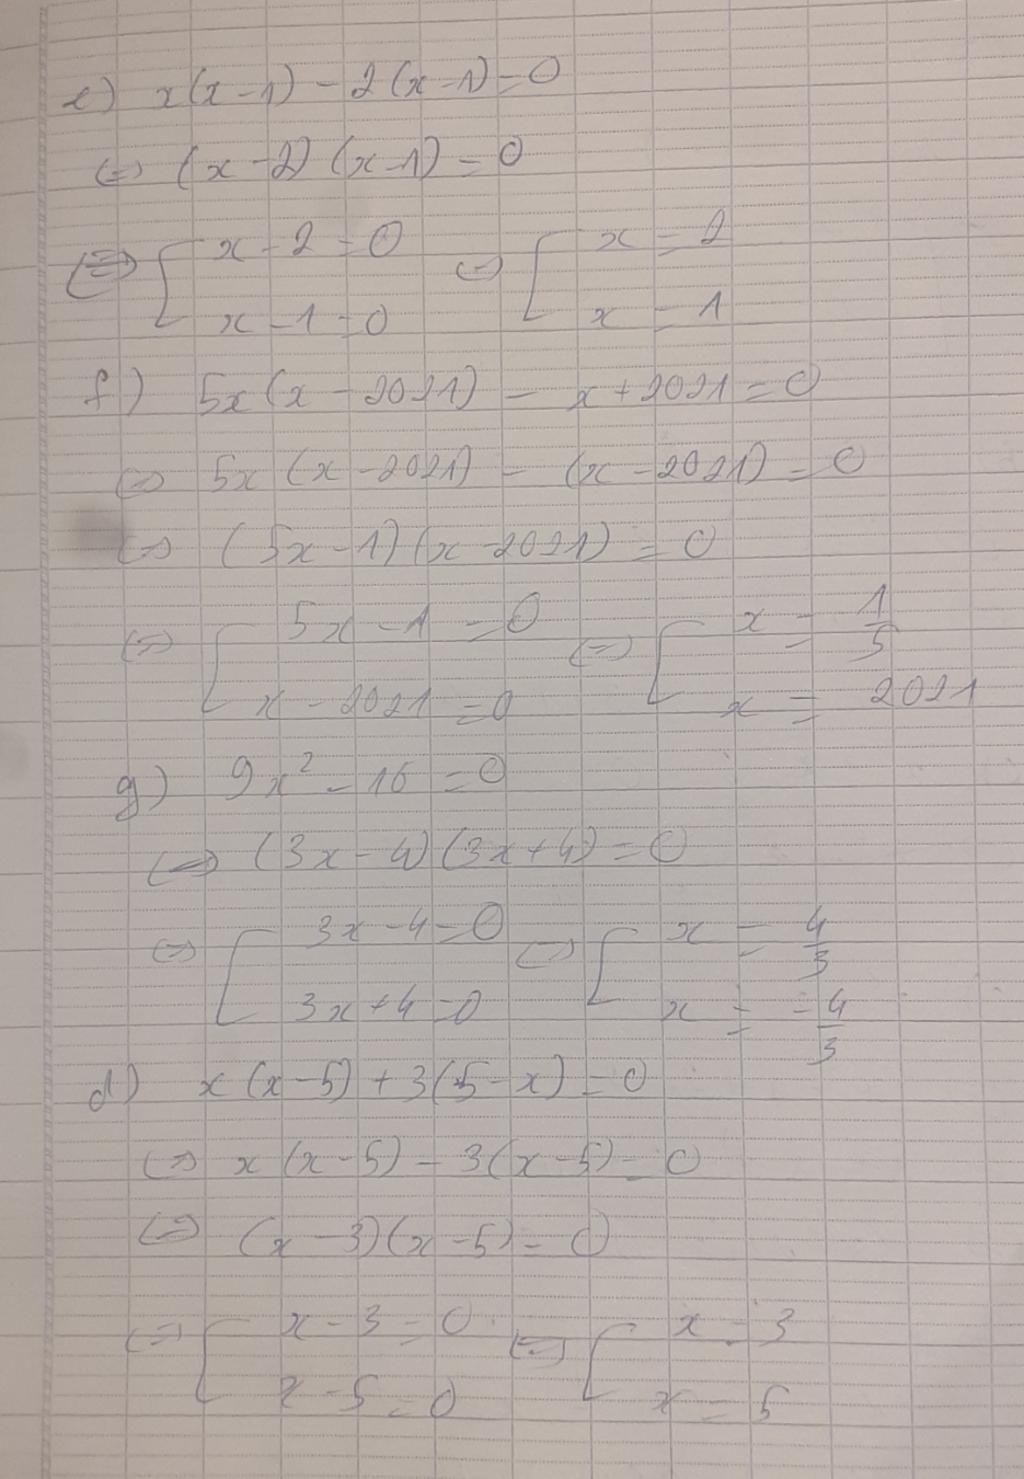 e) x(x-1) - 2(x-1) = 0
<=> (x-2)(x-1) = 0
<=> [ x-2 = 0 <=> [ x = 2
x-1 = 0 x = 1
f) 5x(x-2021) - x+2021 = 0
<=> 5x(x-2021) - (x-2021) = 0
<=> (5x-1)(x-2021) = 0
<=> [ 5x-1 = 0 <=> [ x = 1/5
x-2021 = 0 x = 2021
g) 9x² - 16 = 0
<=> (3x-4)(3x+4) = 0
<=> [ 3x-4 = 0 <=> [ x = 4/3
3x+4 = 0 x = -4/3
d) x(x-5) + 3(5-x) = 0
<=> x(x-5) - 3(x-5) = 0
<=> (x-3)(x-5) = 0
<=> [ x-3 = 0 <=> [ x = 3
x-5 = 0 x = 5